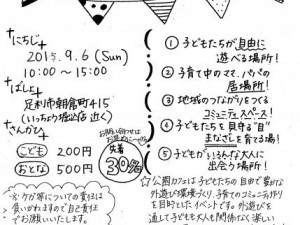 にちじ
2015.9.6 (Sun)
10:00〜15:00
ばしょ
足利市朝倉町415
(いっちょう堀込店近く)
さんかひ
こども 200円
おとな 500円
お問い合わせは
お早めに〜
先着
30名
※ケガ等についての責任は
負いかねますので自己責任
でお願いいたします。
① 子どもたちが自由に
遊べる場所!
② 子育て中のママ、パパの
居場所!
③ 地域のつながりをつくる
コミュニティスペース!
④ 子どもたちを見守る"目"
まなざしを育てる場!
⑤ 子どもがいろんな大人に
出会う場所!
☆公園カフェは子どもたちの自由で豊かな
外遊び環境づくり、子育てのコミュニティ作り
を目的としたイベントです。外遊びを
通して子どもも大人も関係なく楽しい